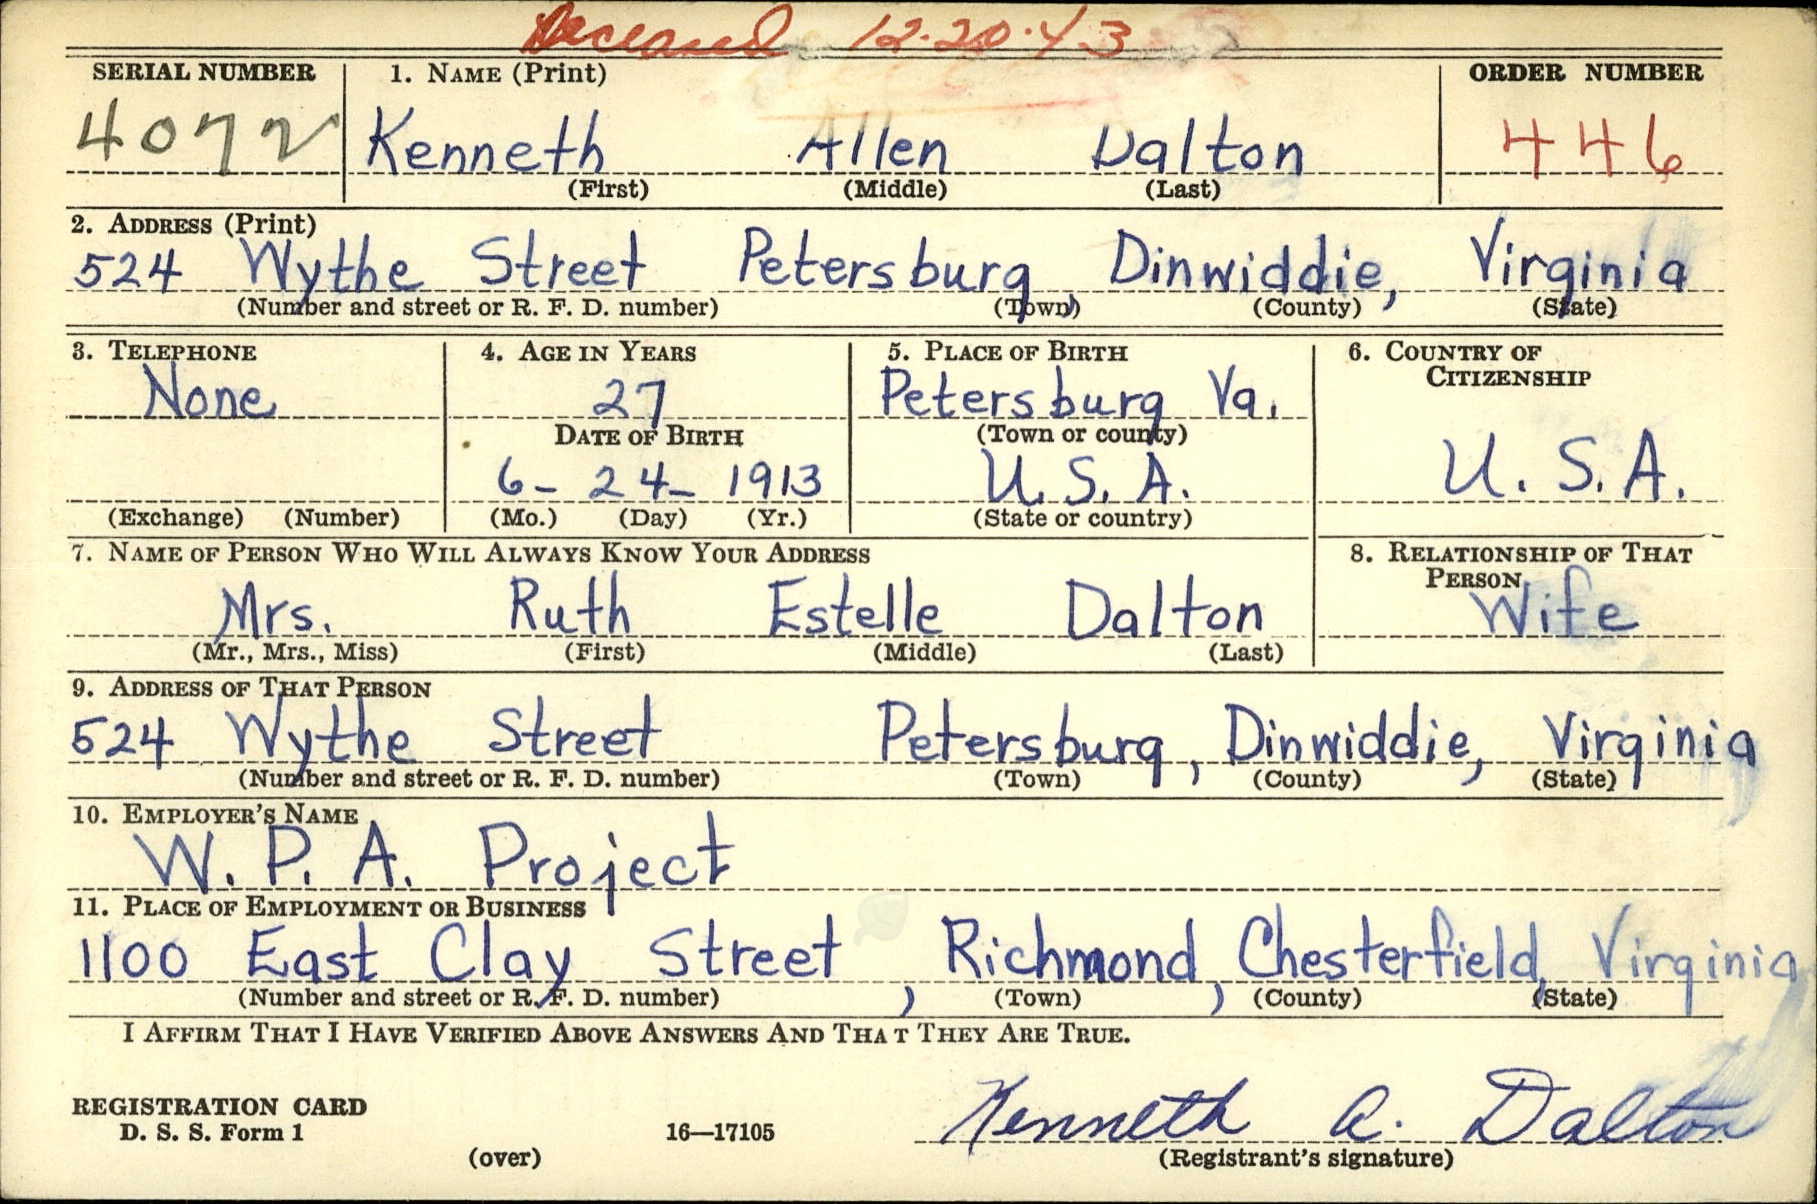 Deceased 12·20·43
SERIAL NUMBER 1. NAME (Print) ORDER NUMBER
4072 Kenneth Allen Dalton 446
(First) (Middle) (Last)
2. ADDRESS (Print)
524 Wythe Street Petersburg, Dinwiddie, Virginia
(Number and street or R. F. D. number) (Town) (County) (State)
3. TELEPHONE 4. AGE IN YEARS 5. PLACE OF BIRTH 6. COUNTRY OF
CITIZENSHIP
None 27 Petersburg Va.
DATE OF BIRTH (Town or county)
6- 24- 1913 U.S.A. U.S.A.
(Exchange) (Number) (Mo.) (Day) (Yr.) (State or country)
7. NAME OF PERSON WHO WILL ALWAYS KNOW YOUR ADDRESS 8. RELATIONSHIP OF THAT
PERSON
Mrs. Ruth Estelle Dalton Wife
(Mr., Mrs., Miss) (First) (Middle) (Last)
9. ADDRESS OF THAT PERSON
524 Wythe Street Petersburg, Dinwiddie, Virginia
(Number and street or R. F. D. number) (Town) (County) (State)
10. EMPLOYER'S NAME
W. P. A. Project
11. PLACE OF EMPLOYMENT OR BUSINESS
1100 East Clay Street, Richmond, Chesterfield, Virginia
(Number and street or R. F. D. number) (Town) (County) (State)
I AFFIRM THAT I HAVE VERIFIED ABOVE ANSWERS AND THAT THEY ARE TRUE.
REGISTRATION CARD
D. S. S. Form 1 16—17105 Kenneth A. Dalton
(over) (Registrant's signature)